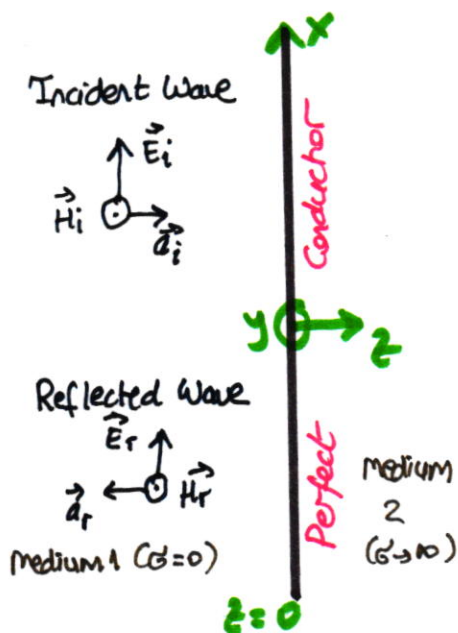 X
Incident Wave
E⃗i
H⃗i
a⃗i
Conductor
y
z
Reflected Wave
E⃗r
a⃗r
H⃗r
Perfect
medium 1 (σ=0)
medium
2
(σ→∞)
z=0